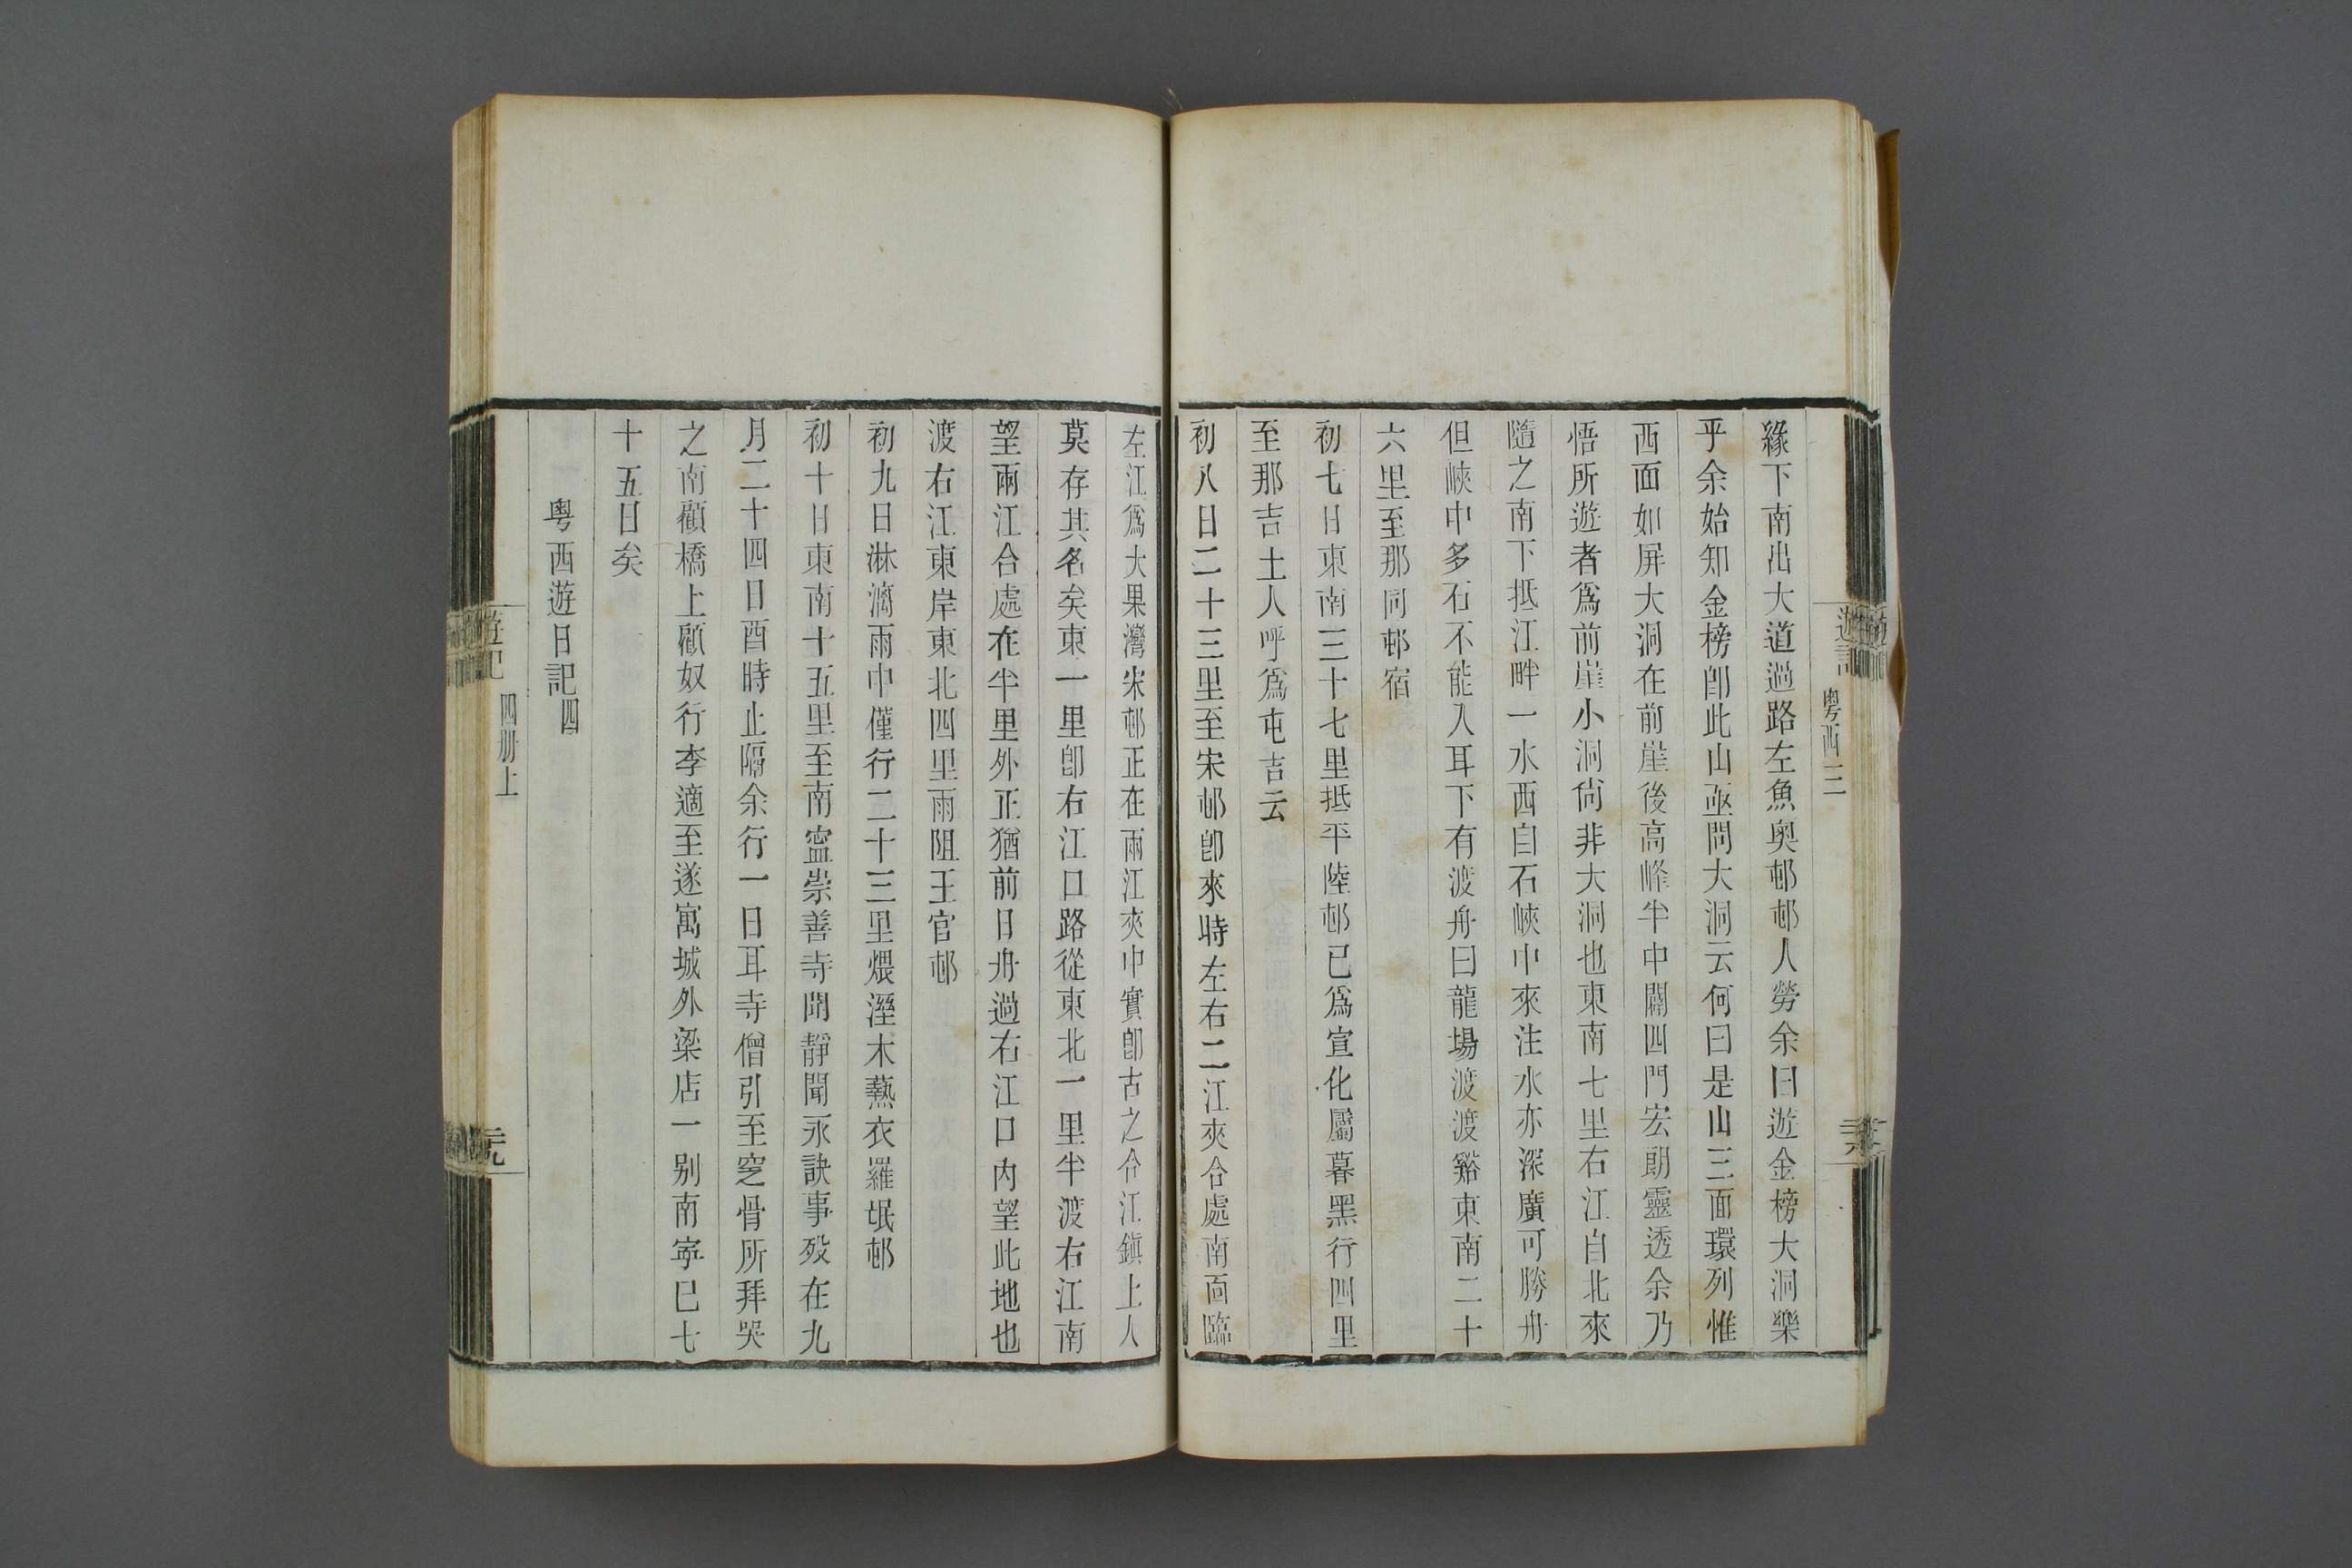 遊記
粵西三
緣下南出大道過路左魚奧邨邨人勞余曰遊金榜大洞樂
乎余始知金榜卽此山亟問大洞云何曰是山三面環列惟
西面如屏大洞在前崖後高峰半中闢四門宏朗靈透余乃
悟所遊者爲前崖小洞尙非大洞也東南七里右江自北來
隨之南下抵江畔一水西自石峽中來注水亦深廣可勝舟
但峽中多石不能入耳下有渡舟曰龍場渡渡谿東南二十
六里至那同邨宿
初七日東南三十七里抵平陸邨已爲宣化屬暮黑行四里
至那吉土人呼爲屯吉云
初八日二十三里至宋邨卽來時左右二江夾合處南面臨
左江爲大果灣宋邨正在兩江夾中實卽古之合江鎭上人
莫存其名矣東一里卽右江口路從東北一里半渡右江南
望兩江合處在半里外正猶前日舟過右江口內望此地也
渡右江東岸東北四里雨阻王官邨
初九日淋漓雨中僅行二十三里煨溼木爇衣羅岷邨
初十日東南十五里至南寍崇善寺聞靜聞永訣事歿在九
月二十四日酉時止隔余行一日耳寺僧引至窆骨所拜哭
之南顧橋上顧奴行李適至遂寓城外梁店一別南寧已七
十五日矣
粵西遊日記四
遊記
四册上